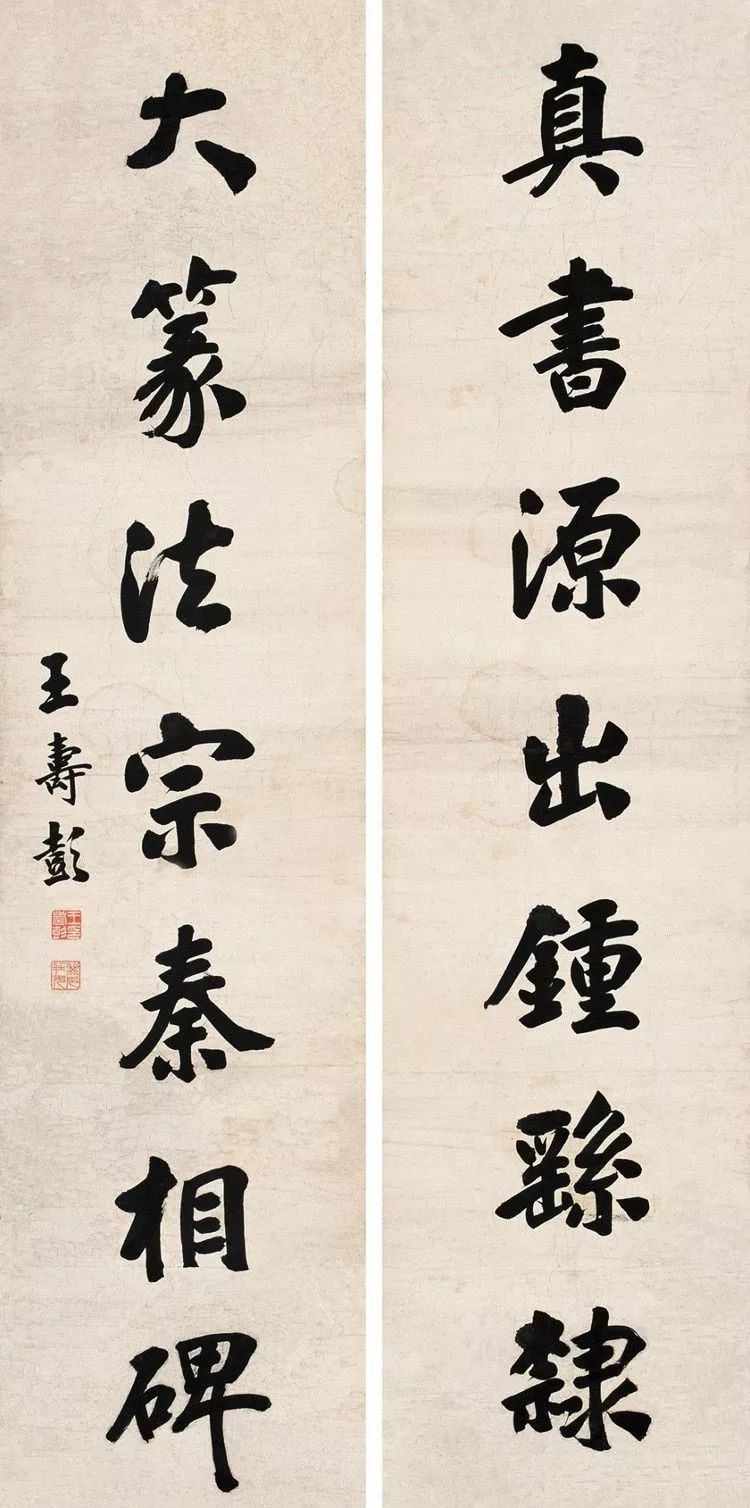 真書源出鍾繇隸
大篆法宗秦相碑
王壽彭
王印壽彭